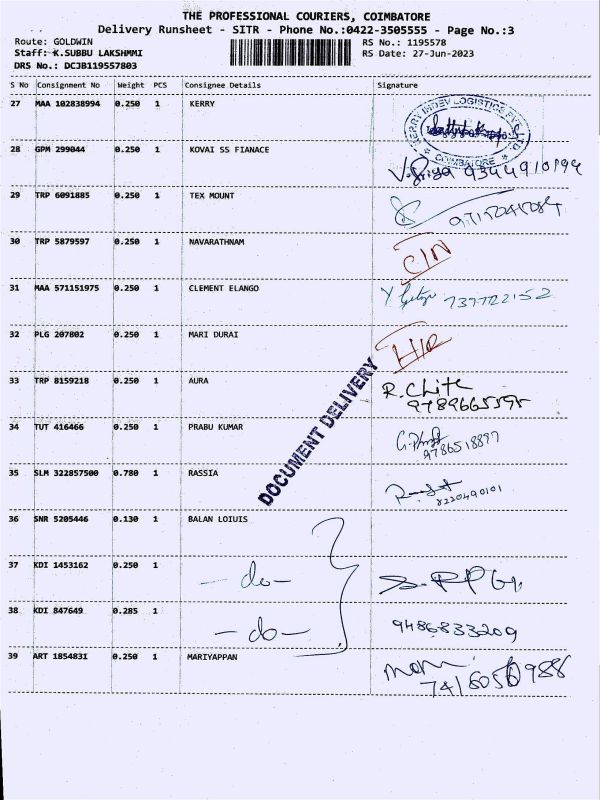 THE PROFESSIONAL COURIERS, COIMBATORE
Delivery Runsheet - SITR - Phone No.:0422-3505555 - Page No.:3
Route: GOLDWIN RS No.: 1195578
Staff: K.SUBBU LAKSHMMI RS Date: 27-Jun-2023
DRS No.: DCJB119557803
S No Consignment No Weight PCS Consignee Details Signature
27 MAA 102838994 0.250 1 KERRY
KERRY INDEV LOGISTICS PVT. LTD
* COIMBATORE *
28 GPM 299044 0.250 1 KOVAI SS FIANACE
V. Priya 9344910194
29 TRP 6091885 0.250 1 TEX MOUNT
30 TRP 5879597 0.250 1 NAVARATHNAM
C/N
31 MAA 571151975 0.250 1 CLEMENT ELANGO
32 PLG 207802 0.250 1 MARI DURAI
33 TRP 8159218 0.250 1 AURA R. Chite
34 TUT 416466 0.250 1 PRABU KUMAR
9786518897
35 SLM 322857500 0.780 1 RASSIA
8220490101
36 SNR 5205446 0.130 1 BALAN LOIUIS
37 KDI 1453162 0.250 1 - do -
38 KDI 847649 0.285 1 - do - 9486833209
39 ART 1854831 0.250 1 MARIYAPPAN
DOCUMENT DELIVERY